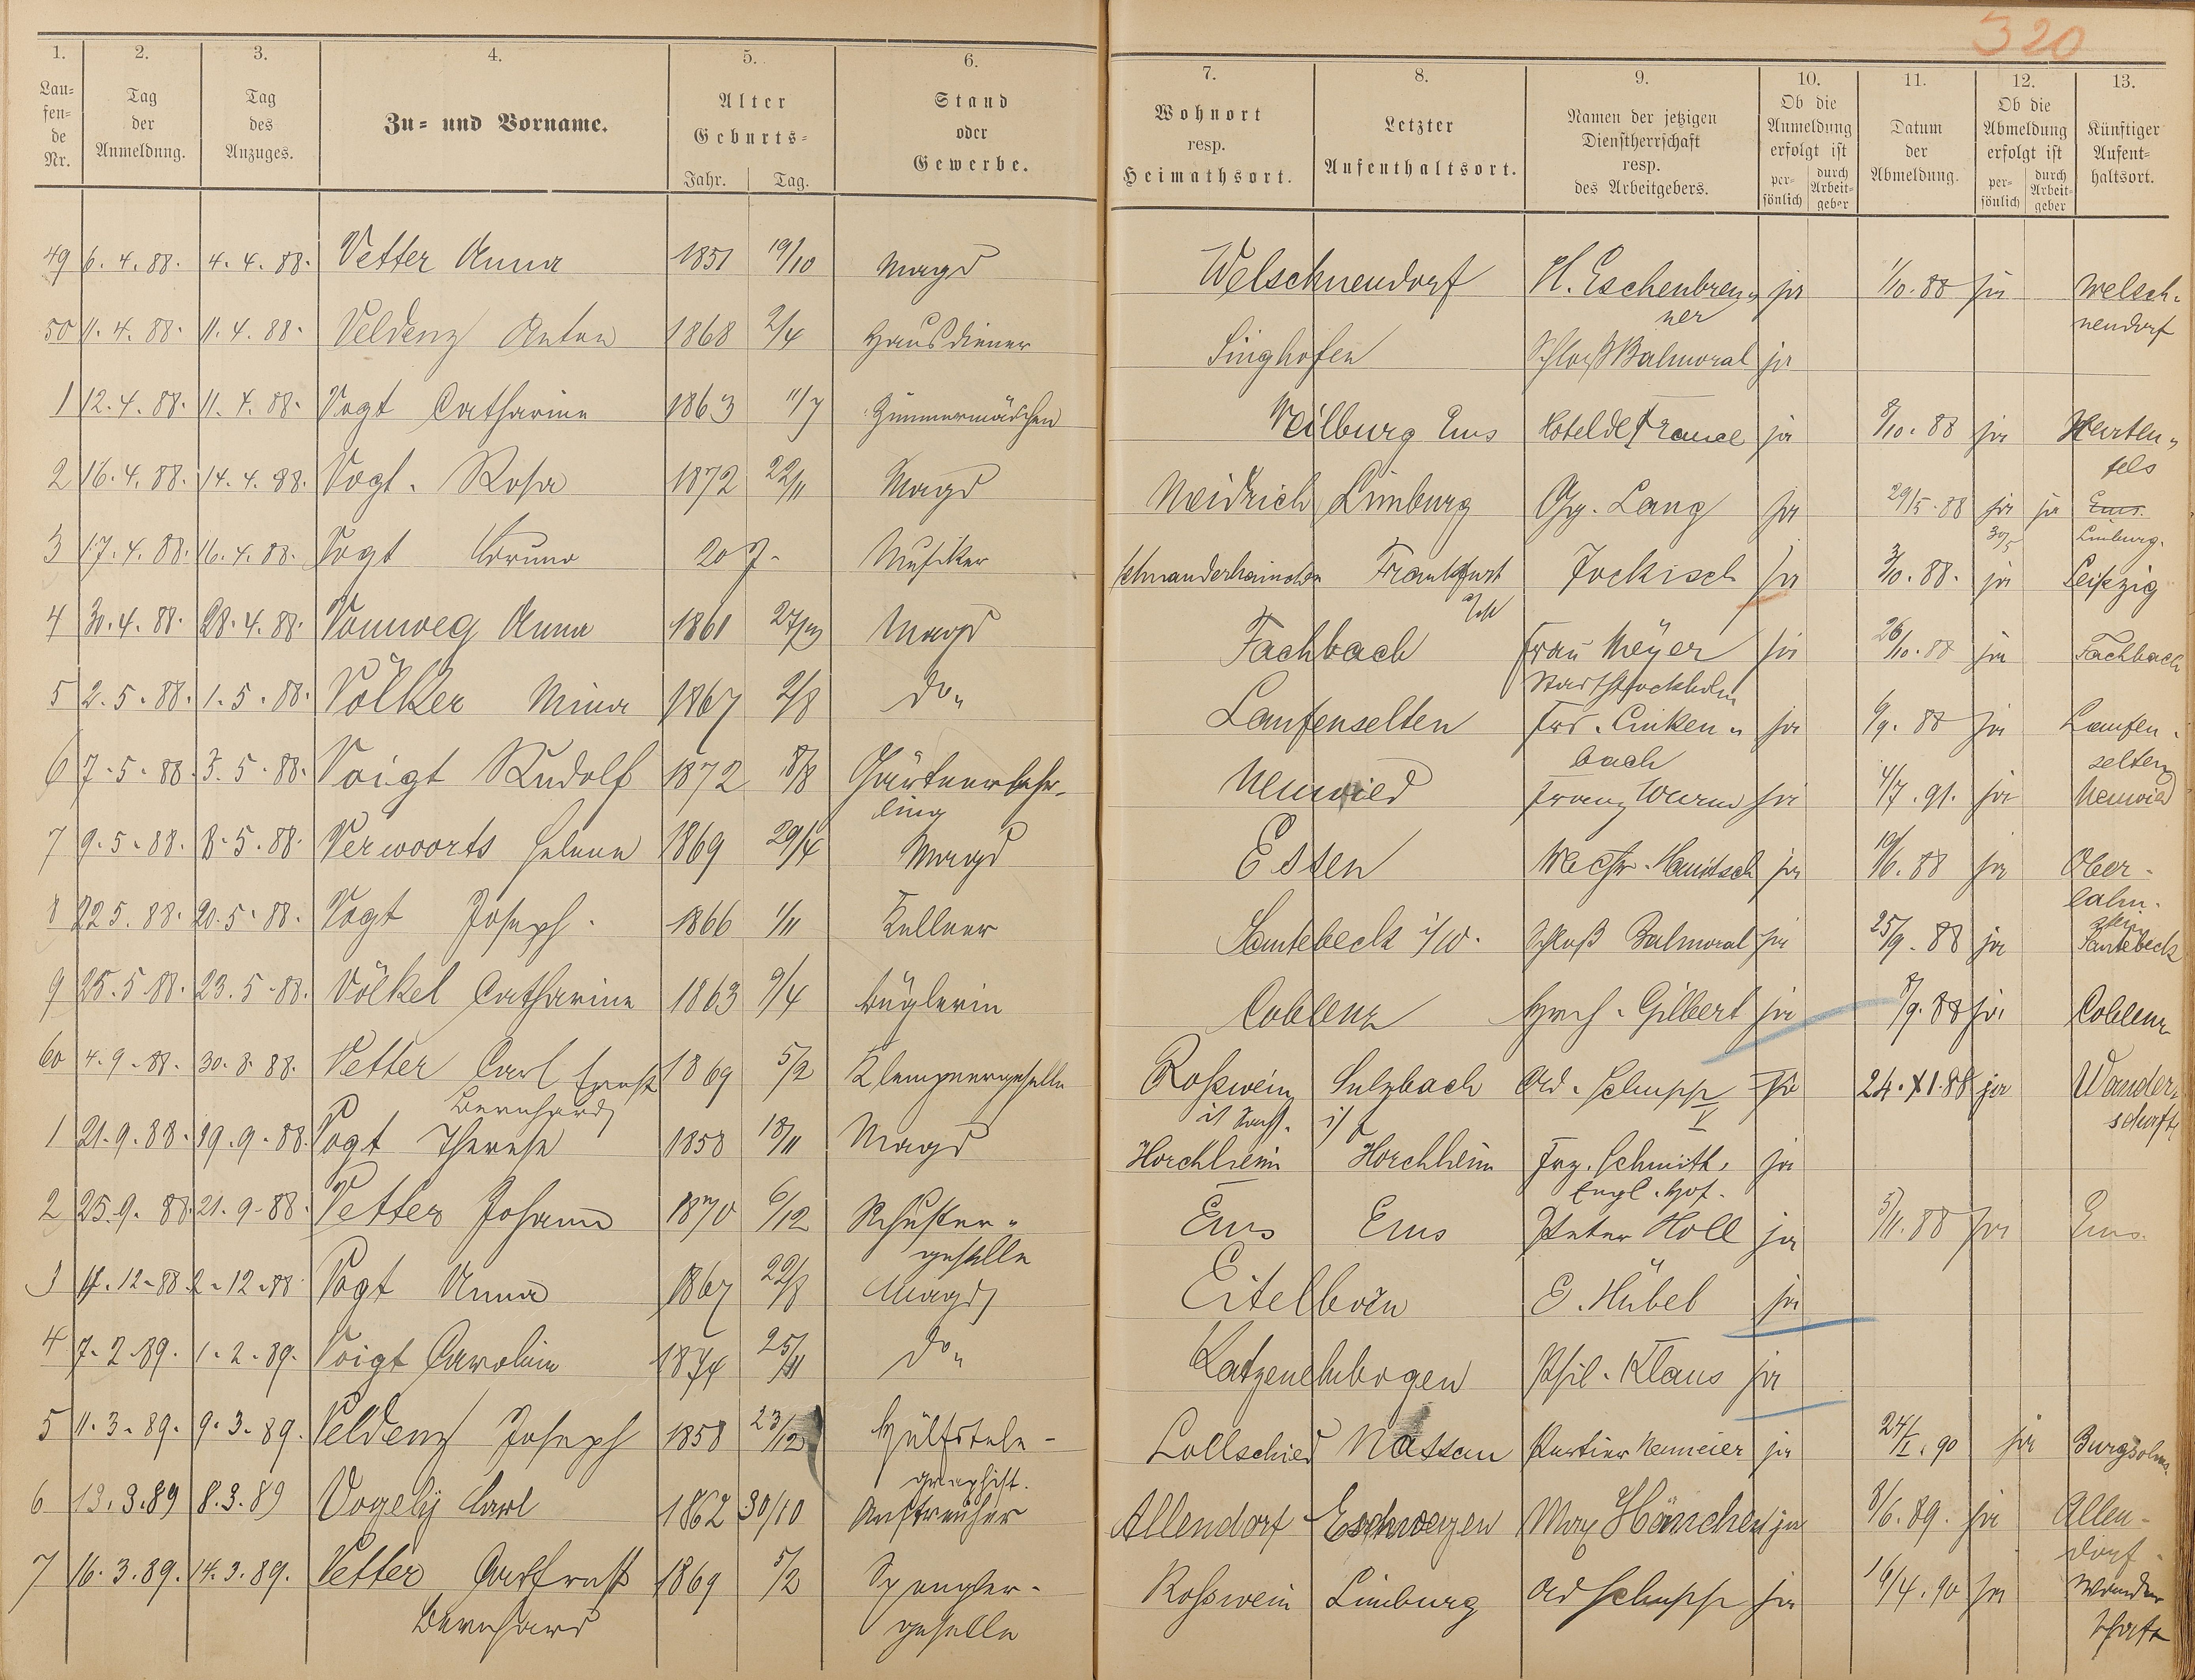 320
1. 2. 3. 4. 5. 6. 7. 8. 9. 10. 11. 12. 13.
Laufende Nr. Tag der Anmeldung. Tag des Anzuges. Zu- und Vorname. Alter Geburts- Jahr. Tag. Stand oder Gewerbe. Wohnort resp. Heimathsort. Letzter Aufenthaltsort. Namen der jetzigen Dienstherrschaft resp. des Arbeitgebers. Ob die Anmeldung erfolgt ist persönlich durch Arbeitgeber Datum der Abmeldung. Ob die Abmeldung erfolgt ist persönlich durch Arbeitgeber Künftiger Aufenthaltsort.
49 6.4.88. 4.4.88. Vetter Anna 1851 19/10 Magd Welschneudorf H. Eschenbren- ja 1/10.88 ja Welsch-
ner neudorf
50 11.4.88. 11.4.88. Veldenz Anton 1868 2/4 Hausdiener Singhofen Schloß Balmoral ja
1 12.4.88. 11.4.88. Vogt Catharine 1863 11/7 Zimmermädchen Weilburg Ems Hotel de France ja 8/10.88 ja Harten-
fels
2 16.4.88. 14.4.88. Vogt. Rosa 1872 22/11 Magd Meidrich Limburg Gg. Lang ja 29/5.88 ja ja Ems.
30/5 Limburg.
3 17.4.88. 16.4.88. Vogt Bruno 20 J. Musiker Frankfurt Jockisch ja 3/10.88. ja Leipzig
a/M
4 30.4.88. 28.4.88. Vomweg Anna 1861 Magd Fachbach Frau Meyer ja 26/10.88 ja Fachbach
Stadt Stockholm
5 2.5.88. 1.5.88. Völker Mina 1867 2/8 do. Laufenselten Frd. Linken- ja 6/9.88 ja Laufen-
bach selten
6 7.5.88. 3.5.88. Voigt Rudolf 1872 18/8 Gärtnerlehr- Neuwied Franz Wurm ja 4/7.91. ja Neuwied
ling
7 9.5.88. 8.5.88. Verwoorts Helene 1869 29/4 Magd Essen ja 19/6.88 ja Ober-
lahn-
stein
8 22.5.88. 20.5.88. Vogt Joseph. 1866 1/11 Kellner Santebeck i/W. Schloß Balmoral ja 25/9.88 ja Santebeck
9 25.5.88. 23.5.88. Völkel Catharine 1863 9/4 Büglerin Coblenz Hrch. Gilbert ja 8/9.88 ja Coblenz
60 4.9.88. 30.8.88. Vetter Carl Ernst 1869 5/2 Klempnergeselle Roßwein Sulzbach Ad. Schupp ja 24.XI.88 ja Wander-
Bernhard schaft
1 21.9.88. 19.9.88. Vogt Therese 1858 18/11 Magd Horchheim Horchheim Frz. Schmitt, ja
Engl. Hof.
2 25.9.88. 21.9.88. Vetter Johann 1870 6/12 Schuster- Ems Ems Peter Holl ja 5/11.88 ja Ems.
geselle
3 4.12.88. 2.12.88. Vogt Anna 1867 22/8 Magd Eitelborn E. Hübel ja
4 7.2.89. 1.2.89. Voigt Carolin 1874 25/11 do. Katzenelnbogen Phil. Klaus ja
5 11.3.89. 9.3.89. Veldenz Joseph 1858 23/12 Hülfstele- Lollschied Nassau Portier Neumeier ja 24/I.90 ja Burgsolms.
graphist.
6 13.3.89 8.3.89 Vogely Carl 1862 30/10 Anstreicher Allendorf Eschwegen Max Hänchen ja 8/6.89. ja Allen-
dorf.
7 16.3.89. 14.3.89. Vetter Carl Ernst 1869 5/2 Spengler- Roßwein Limburg Ad Schupp ja 16/4.90 ja Wander
Bernhard geselle schaft